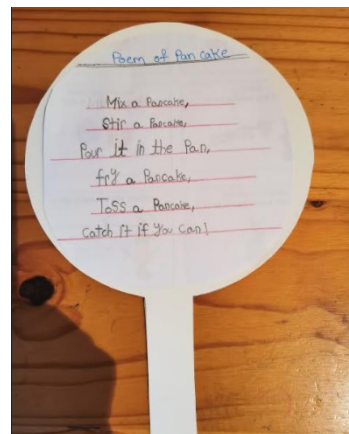 Poem of Pan cake
Mix a Pancake,
Stir a Pancake,
Pour it in the Pan,
fry a Pancake,
Toss a Pancake,
catch it if you can!